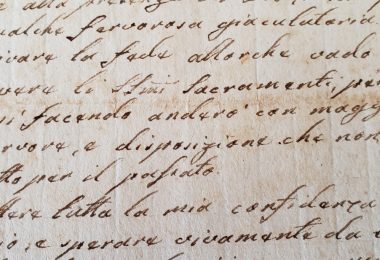 alla presenza
ualche fervorosa giaculatoria.
ivare la fede allorche vado
vere li SSmi Sacramenti; per
sì facendo anderò con magg
rvore, e disposizione che non
tto per il passato.
tere tutta la mia confidenza
io, e sperare vivamente da